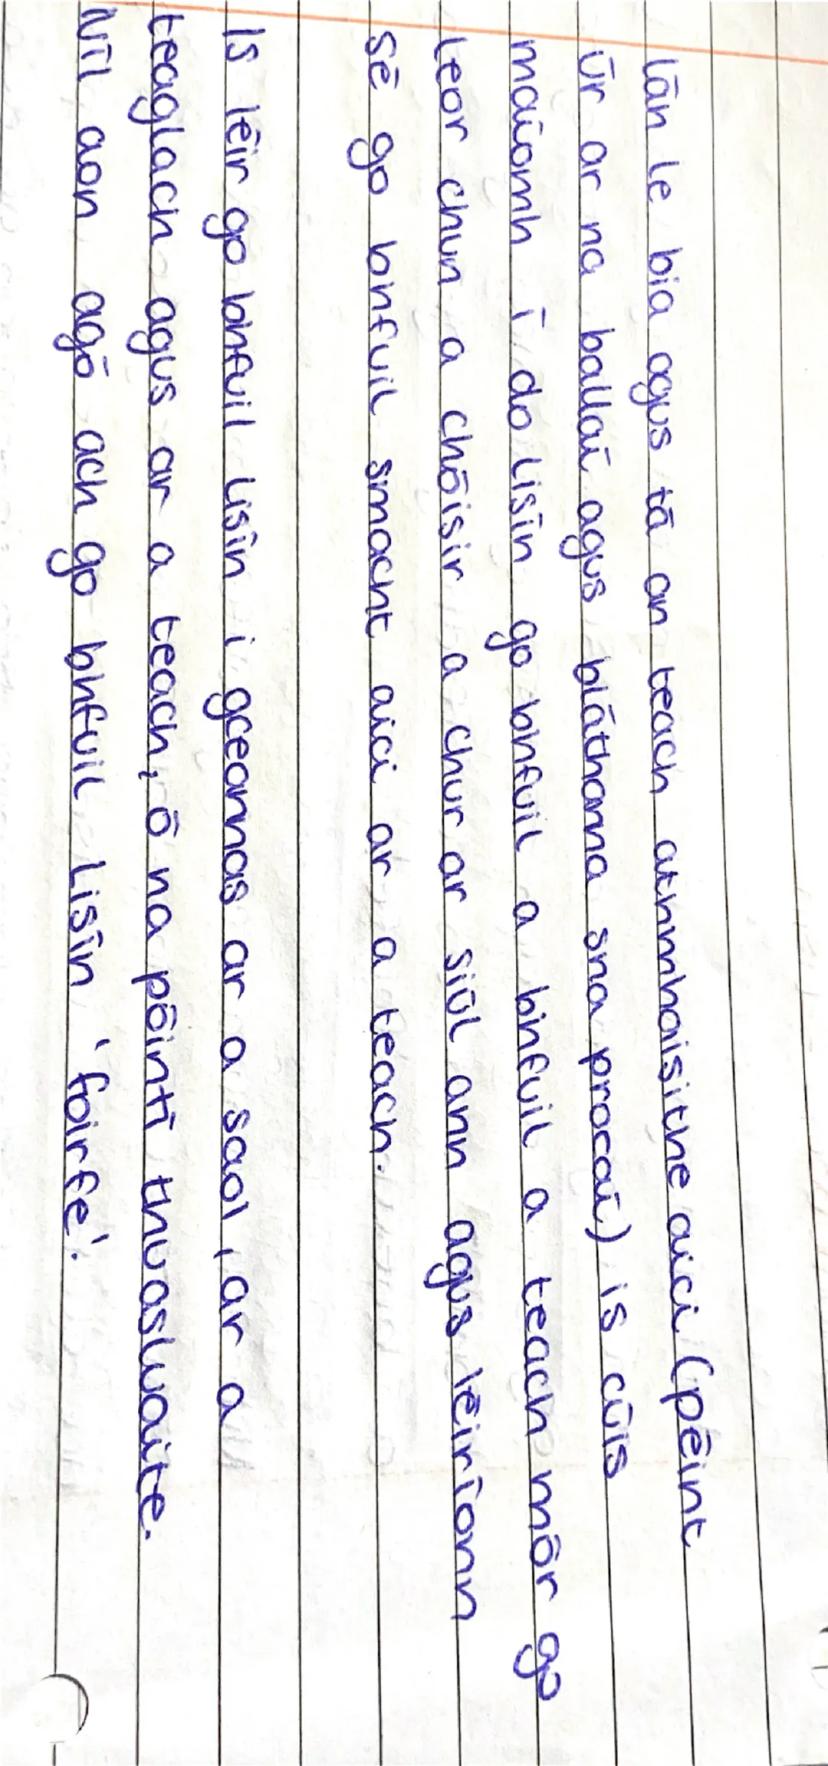 lán le bia agus tá an teach athmhaisithe aici (péint
úr ar na ballaí agus bláthanna sna procaí) is cúis
maíomh í do Lisín go bhfuil a bhfuil a teach mór go
leor chun a chóisir a chur ar siúl ann agus léiríonn
sé go bhfuil smacht aici ar a teach.
Is léir go bhfuil Lisín i gceannas ar a saol, ar a
teaglach agus ar a teach, ó na pointí thuasluaite.
Níl aon agó ach go bhfuil Lisín 'foirfe'.